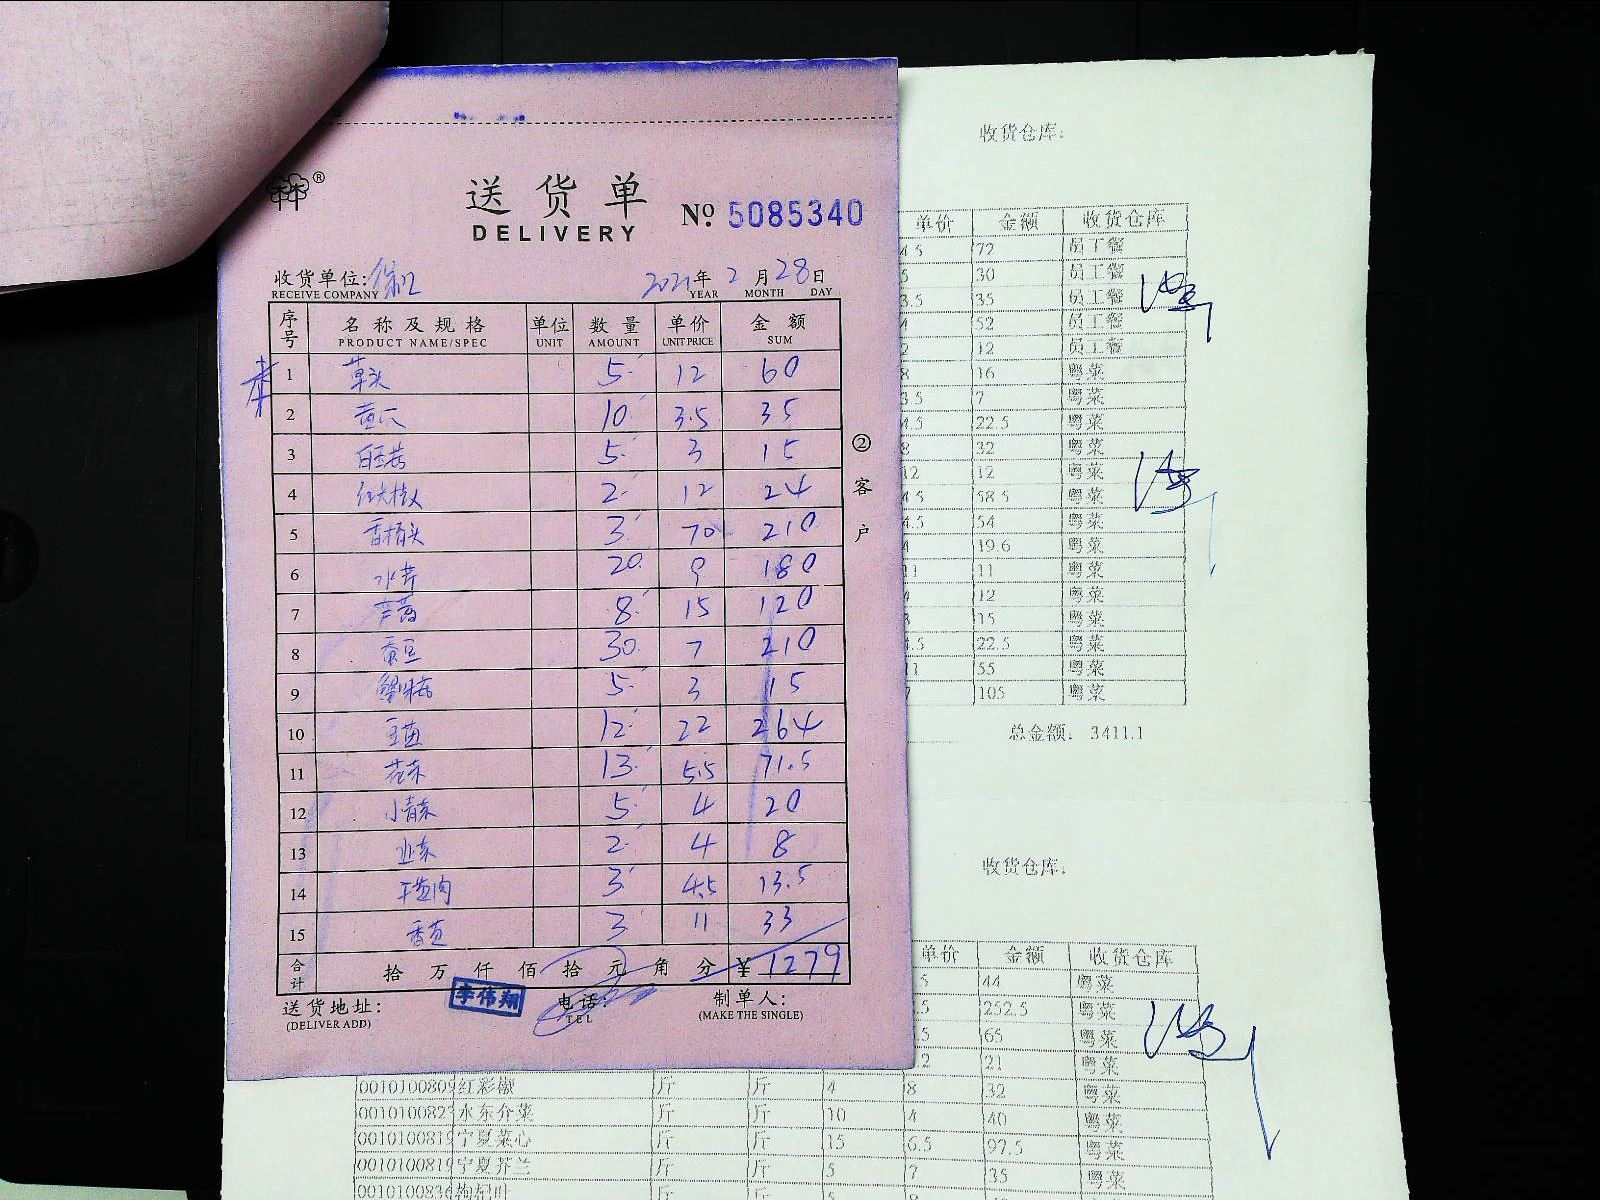 送货单
DELIVERY
№ 5085340
收货单位:
RECEIVE COMPANY
2021年 2月 28日
YEAR MONTH DAY
序号 名称及规格 单位 数量 单价 金额
PRODUCT NAME/SPEC UNIT AMOUNT UNIT PRICE SUM
1 草头 5 12 60
2 黄瓜 10 3.5 35
3 5 3 15
4 2 12 24
5 3 70 210
6 水芹 20 9 180
7 8 15 120
8 蚕豆 30 7 210
9 5 3 15
10 12 22 264
11 花菜 13 5.5 71.5
12 小青菜 5 4 20
13 2 4 8
14 3 4.5 13.5
15 3 11 33
合计 拾 万 仟 佰 拾 元 角 分 ¥ 1279
送货地址: 电话: 制单人:
(DELIVER ADD) TEL (MAKE THE SINGLE)
李伟翔
②客户
收货仓库:
单价 金额 收货仓库
4.5 72 员工餐
5 30 员工餐
3.5 35 员工餐
4 52 员工餐
2 12 员工餐
8 16 粤菜
3.5 7 粤菜
4.5 22.5 粤菜
8 32 粤菜
12 12 粤菜
4.5 58.5 粤菜
4.5 54 粤菜
4 19.6 粤菜
11 11 粤菜
4 12 粤菜
3 15 粤菜
4.5 22.5 粤菜
11 55 粤菜
7 105 粤菜
总金额: 3411.1
收货仓库:
单价 金额 收货仓库
44 粤菜
252.5 粤菜
65 粤菜
21 粤菜
0010100809 红彩椒 斤 斤 4 8 32 粤菜
0010100823 水东介菜 斤 斤 10 4 40 粤菜
0010100819 宁夏菜心 斤 斤 15 6.5 97.5 粤菜
0010100819 宁夏芥兰 斤 斤 5 7 35 粤菜
0010100836 枸杞叶 斤 斤